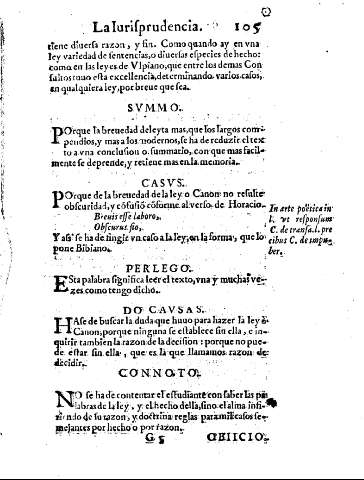 La Iurisprudencia. 105
tiene diuersa razon, y fin. Como quando ay en vna
ley variedad de sentencias, o diuersas especies de hecho:
como en las leyes de Vlpiano, que entre los demas Con
sultos tuuo esta excelencia, determinando varios casos,
en qualquiera ley, por breue que sea.
SVMMO.
POrque la breuedad deleyta mas, que los largos com-
pendios, y mas a los modernos, se ha de reduzir el tex
to a vna conclusion o summario, con que mas facil-
mente se deprende, y retiene mas en la memoria.
CASVS.
POrque de la breuedad de la ley o Canon no resulte
obscuridad, y cõfusiõ cõforme al verso de Horacio.
Breuis esse laboro,
Obscurus fio,
Y assi se ha de fingir vn caso a la ley, en la forma, que lo
pone Bibiano.
In arte poëtica in
l. vt responsum
C. de transa. l. pre
cibus C. de impu-
ber.
PERLEGO.
ESta palabra significa leer el texto, vna y muchas ve-
zes como tengo dicho.
DO CAVSAS.
HAse de buscar la duda que huuo para hazer la ley o
Canon; porque ninguna se establece sin ella, e in-
quirir tambien la razon de la decision: porque no pue-
de estar sin ella, que es la que llamamos razon de
decidir.
CONNOTO.
NO se ha de contentar el estudiante con saber las pa
labras de la ley, y el hecho della, sino el alma infi-
riendo de su razon, y doctrina reglas para mil casos se-
mejantes por hecho o por razon.
G5 OBIICIO